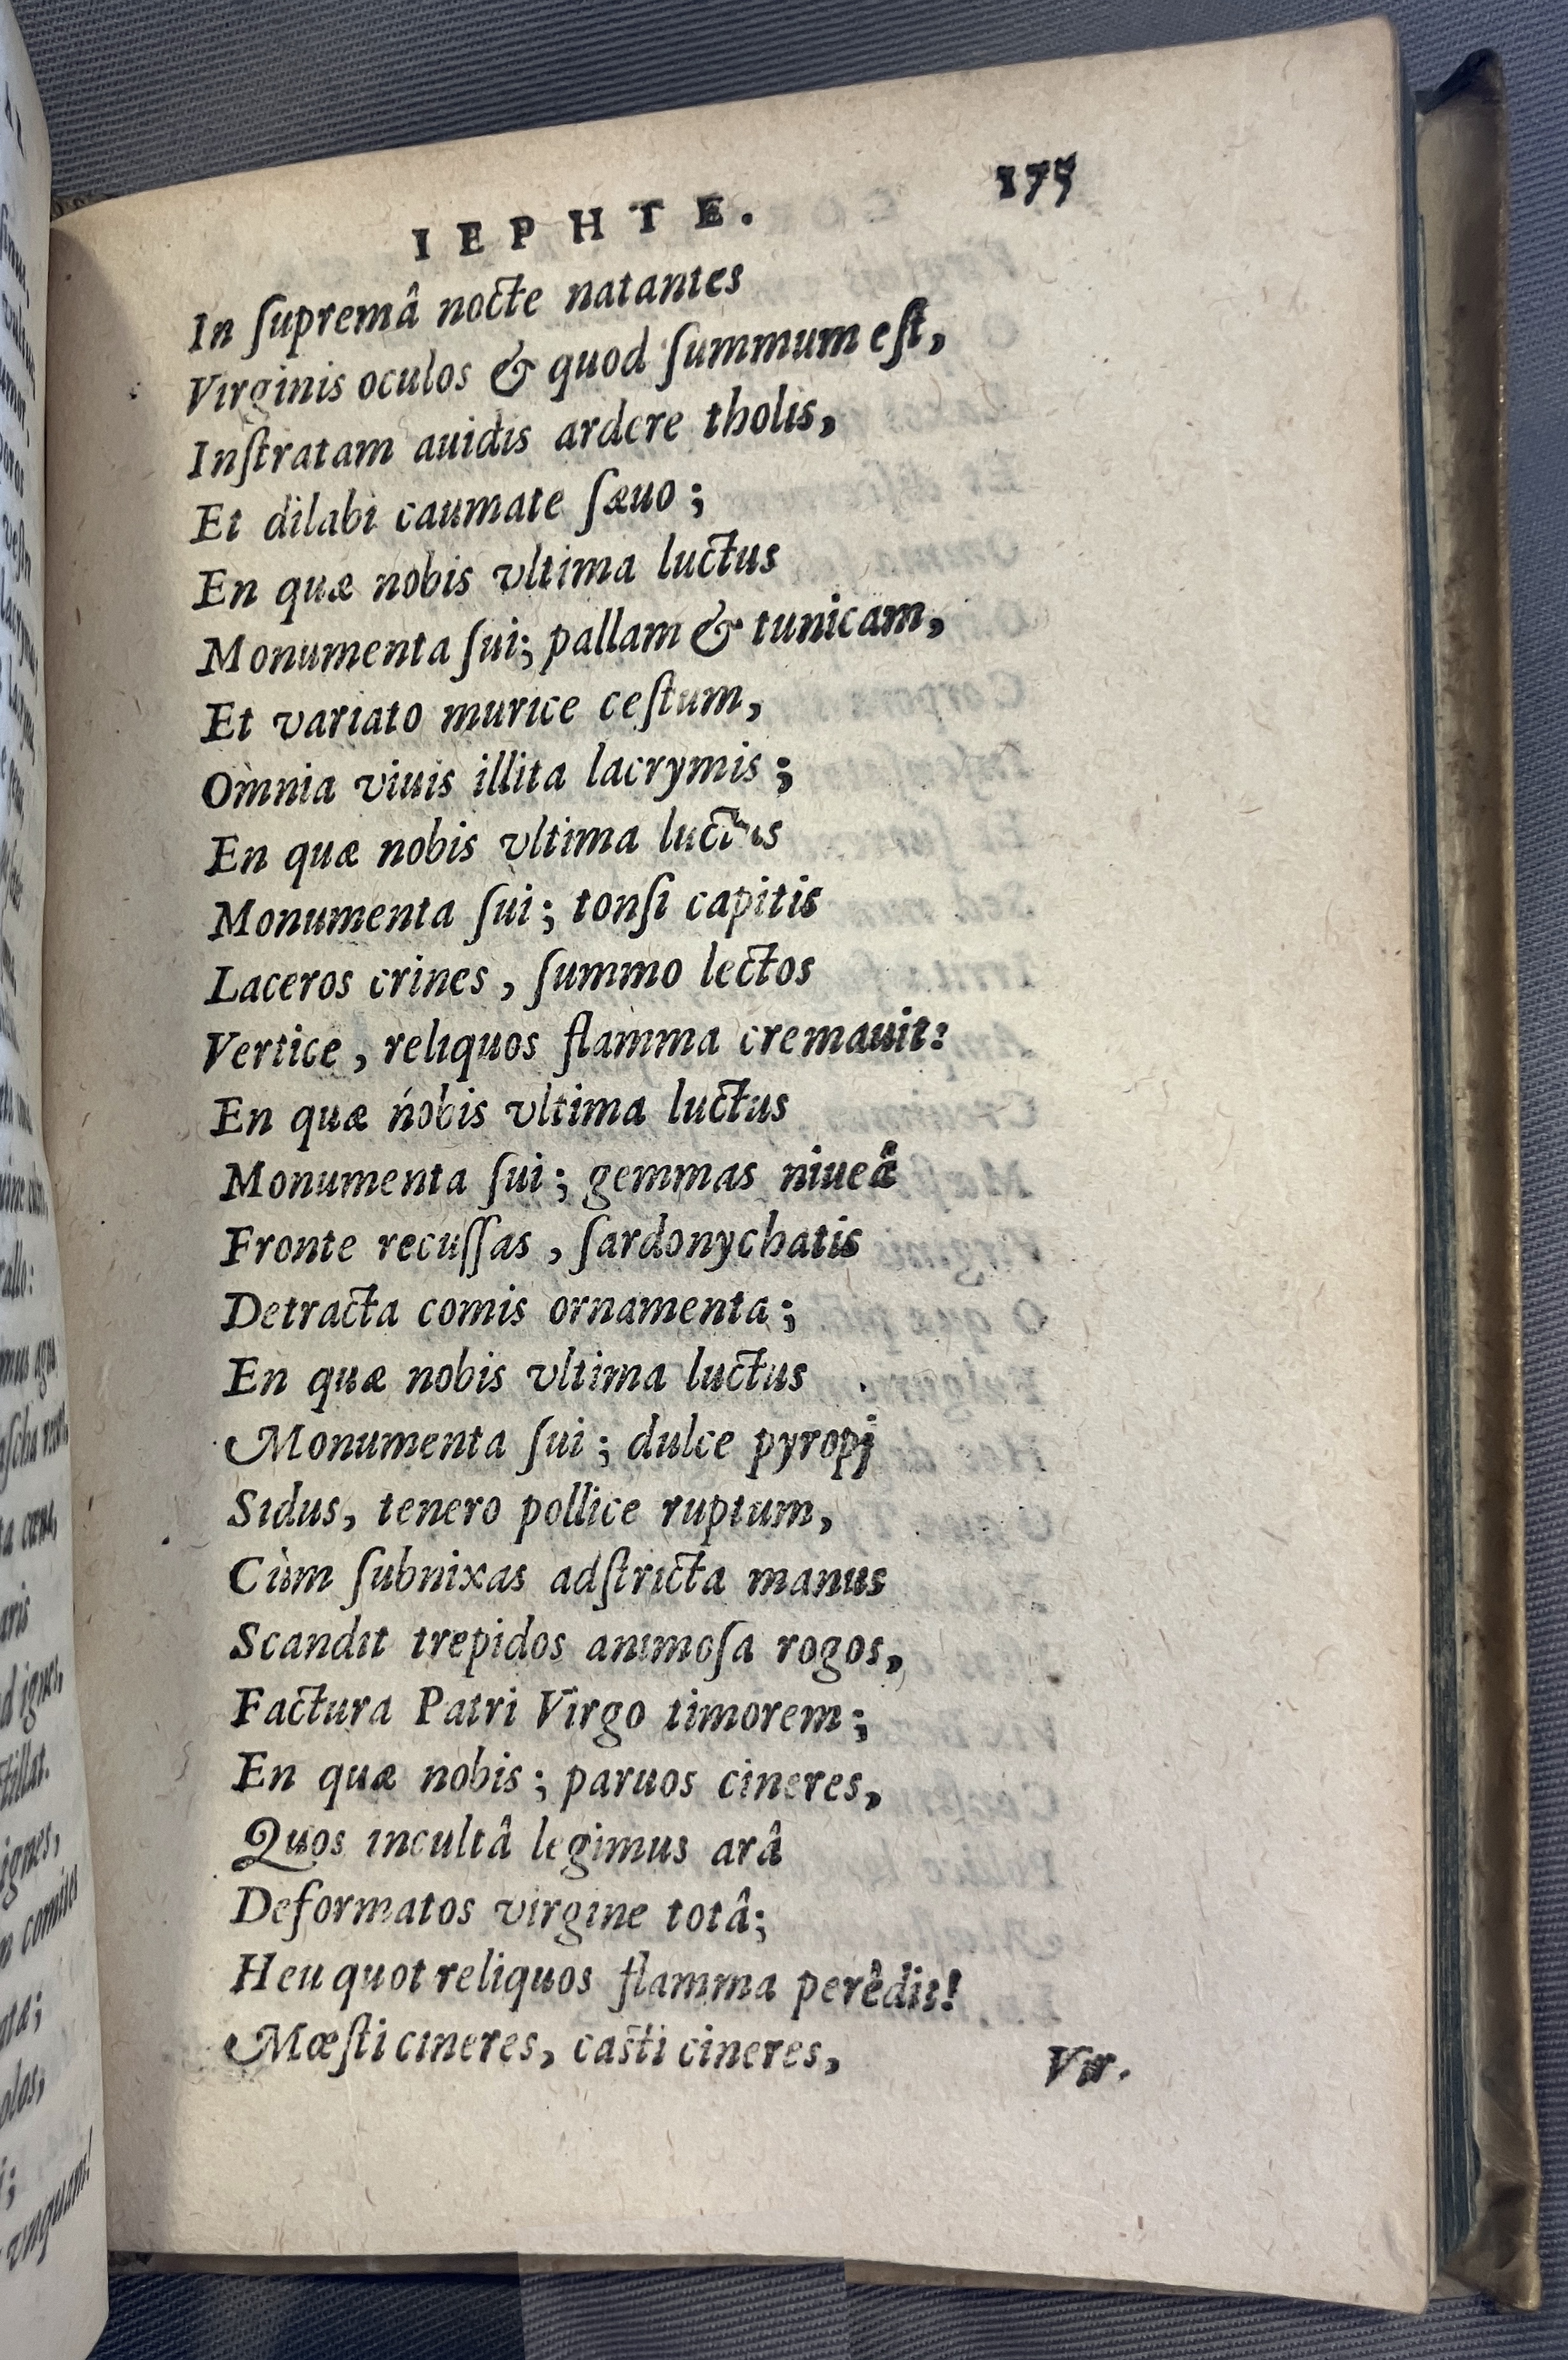 IEPHTE. 175
In ſupremâ nocte natantes
Virginis oculos & quod ſummum eſt,
Inſtratam auidis ardere tholis,
Et dilabi caumate ſæuo;
En quæ nobis vltima luctus
Monumenta ſui; pallam & tunicam,
Et variato murice ceſtum,
Omnia viuis illita lacrymis;
En quæ nobis vltima luctus
Monumenta ſui; tonſi capitis
Laceros crines, ſummo lectos
Vertice, reliquos flamma cremauit:
En quæ nobis vltima luctus
Monumenta ſui; gemmas niueâ
Fronte recuſſas, ſardonychatis
Detracta comis ornamenta;
En quæ nobis vltima luctus
Monumenta ſui; dulce pyropj
Sidus, tenero pollice ruptum,
Cùm ſubnixas adſtricta manus
Scandit trepidos animoſa rogos,
Factura Patri Virgo timorem;
En quæ nobis; paruos cineres,
Quos incultâ legimus arâ
Deformatos virgine totâ;
Heu quot reliquos flamma perêdit!
Mœſti cineres, caſti cineres,
Vir.